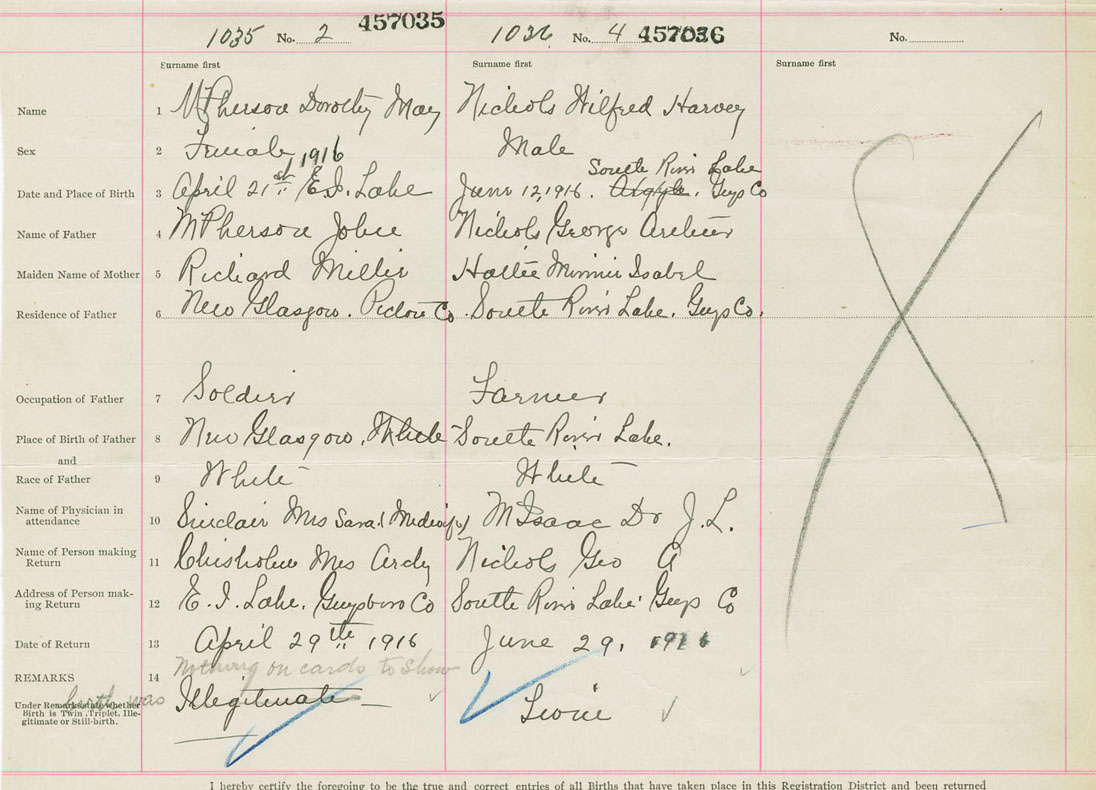 1035 No. 2 457035 1036 No. 4 457036 No.
Surname first Surname first Surname first
Name 1 McPherson Dorothy May Nichols Wilfred Harvey
Sex 2 Female Male
1916 South River Lake
Date and Place of Birth 3 April 21st E.I. Lake June 12, 1916. Argyle, Guys Co
Name of Father 4 McPherson John Nichols George Arthur
Maiden Name of Mother 5 Richard Millie Hattie Minnie Isabel
Residence of Father 6 New Glasgow. Pictou Co. South River Lake. Guys Co.
Occupation of Father 7 Soldier Farmer
Place of Birth of Father 8 New Glasgow, White South River Lake.
and
Race of Father 9 White White
Name of Physician in
attendance 10 Sinclair Mrs Sara (Midwife) McIsaac Dr J.L.
Name of Person making
Return 11 Chisholm Mrs Archy Nichols Geo A
Address of Person mak-
ing Return 12 E.I. Lake, Guysboro Co South River Lake Guys Co
Date of Return 13 April 29th 1916 June 29, 1916
Nothing on cards to show
REMARKS 14
birth was Illegitimate
Under Remarks state whether
Birth is Twin, Triplet, Ille-
gitimate or Still-birth.
I hereby certify the foregoing to be the true and correct entries of all Births that have taken place in this Registration District and been returned